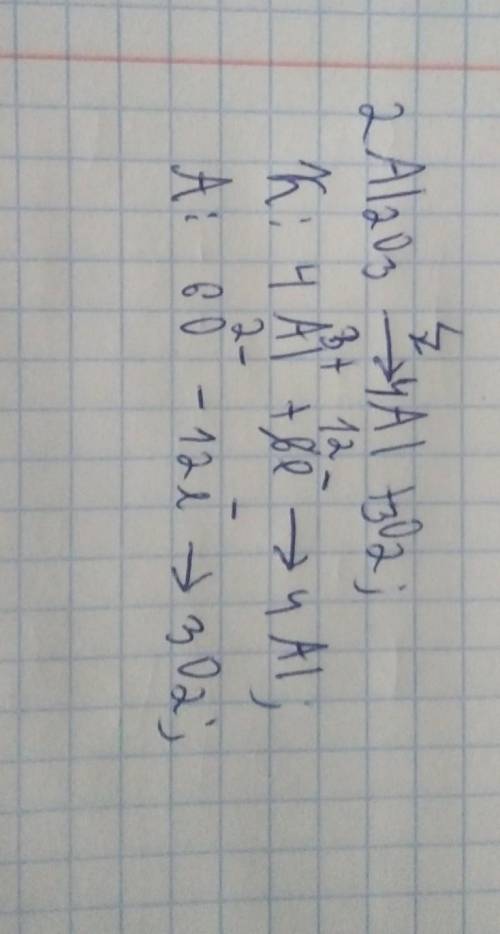 2Al₂O₃ ⟶ 4Al + 3O₂;
K: 4Al³⁺ + 12e⁻ → 4Al;
A: 6O²⁻ - 12e⁻ → 3O₂;